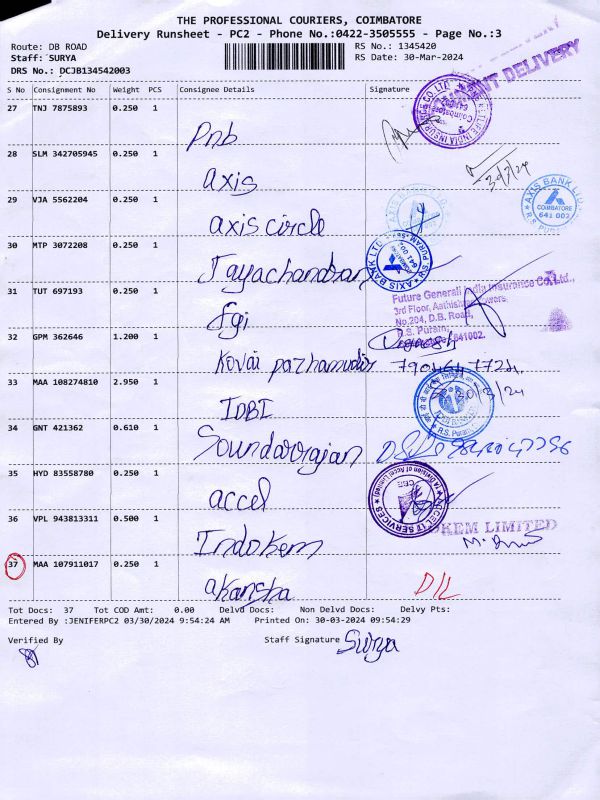 THE PROFESSIONAL COURIERS, COIMBATORE
Delivery Runsheet - PC2 - Phone No.:0422-3505555 - Page No.:3
Route: DB ROAD
Staff: SURYA
DRS No.: DCJB134542003
RS No.: 1345420
RS Date: 30-Mar-2024
S No Consignment No Weight PCS Consignee Details Signature
27 TNJ 7875893 0.250 1
Pnb
28 SLM 342705945 0.250 1
axis
29 VJA 5562204 0.250 1
axis circle
30 MTP 3072208 0.250 1
Jayachandran
31 TUT 697193 0.250 1
fgi
32 GPM 362646 1.200 1
Kovai pazhamudir
33 MAA 108274810 2.950 1
IDBI
34 GNT 421362 0.610 1
Soundarrajan
35 HYD 83558780 0.250 1
accel
36 VPL 943813311 0.500 1
Indokem
37 MAA 107911017 0.250 1
akansha
DELIVERY
AXIS BANK LTD
COIMBATORE
641 002
AXIS BANK LTD.
R.S. PURAM
Future Generali India Insurance Co. Ltd.,
No.204, D.B. Road,
R.S. Puram,
641002.
R.S. Puram
ACCEL IT SERVICES
CBE
DOKEM LIMITED
D/L
Tot Docs: 37 Tot COD Amt: 0.00 Delvd Docs: Non Delvd Docs: Delvy Pts:
Entered By :JENIFERPC2 03/30/2024 9:54:24 AM Printed On: 30-03-2024 09:54:29
Verified By
Staff Signature Surya